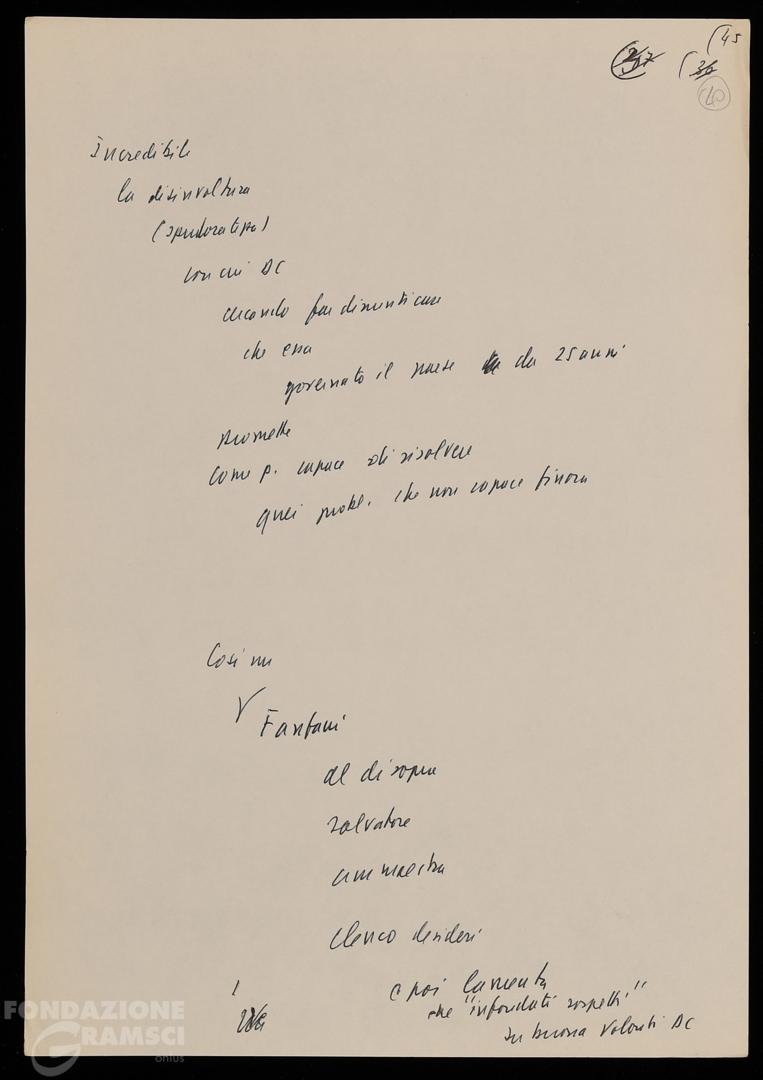 (45
(37 (36
40
Incredibile
la disinvoltura
(spudoratezza)
con cui DC
cercando far dimenticare
che essa
governato il paese da 25 anni
promette
come p. capace di risolvere
quei probl. che non capace finora
Così
V Fanfani
al di sopra
salvatore
ammaestra
elenco desideri
e poi lamenta
che "infondati sospetti"
su buona volontà DC
FONDAZIONE
GRAMSCI
onlus